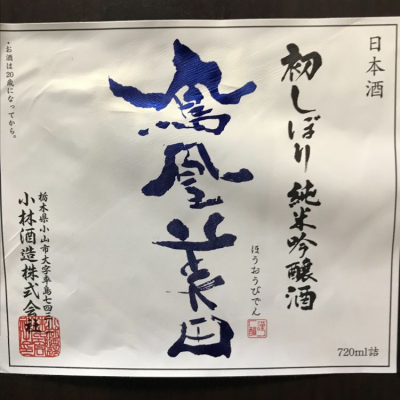 日本酒
初しぼり 純米吟醸酒
鳳凰美田
ほうおうびでん
栃木県小山市大字卒島七四三ノ一
小林酒造株式会社
・お酒は20歳になってから。
720ml詰